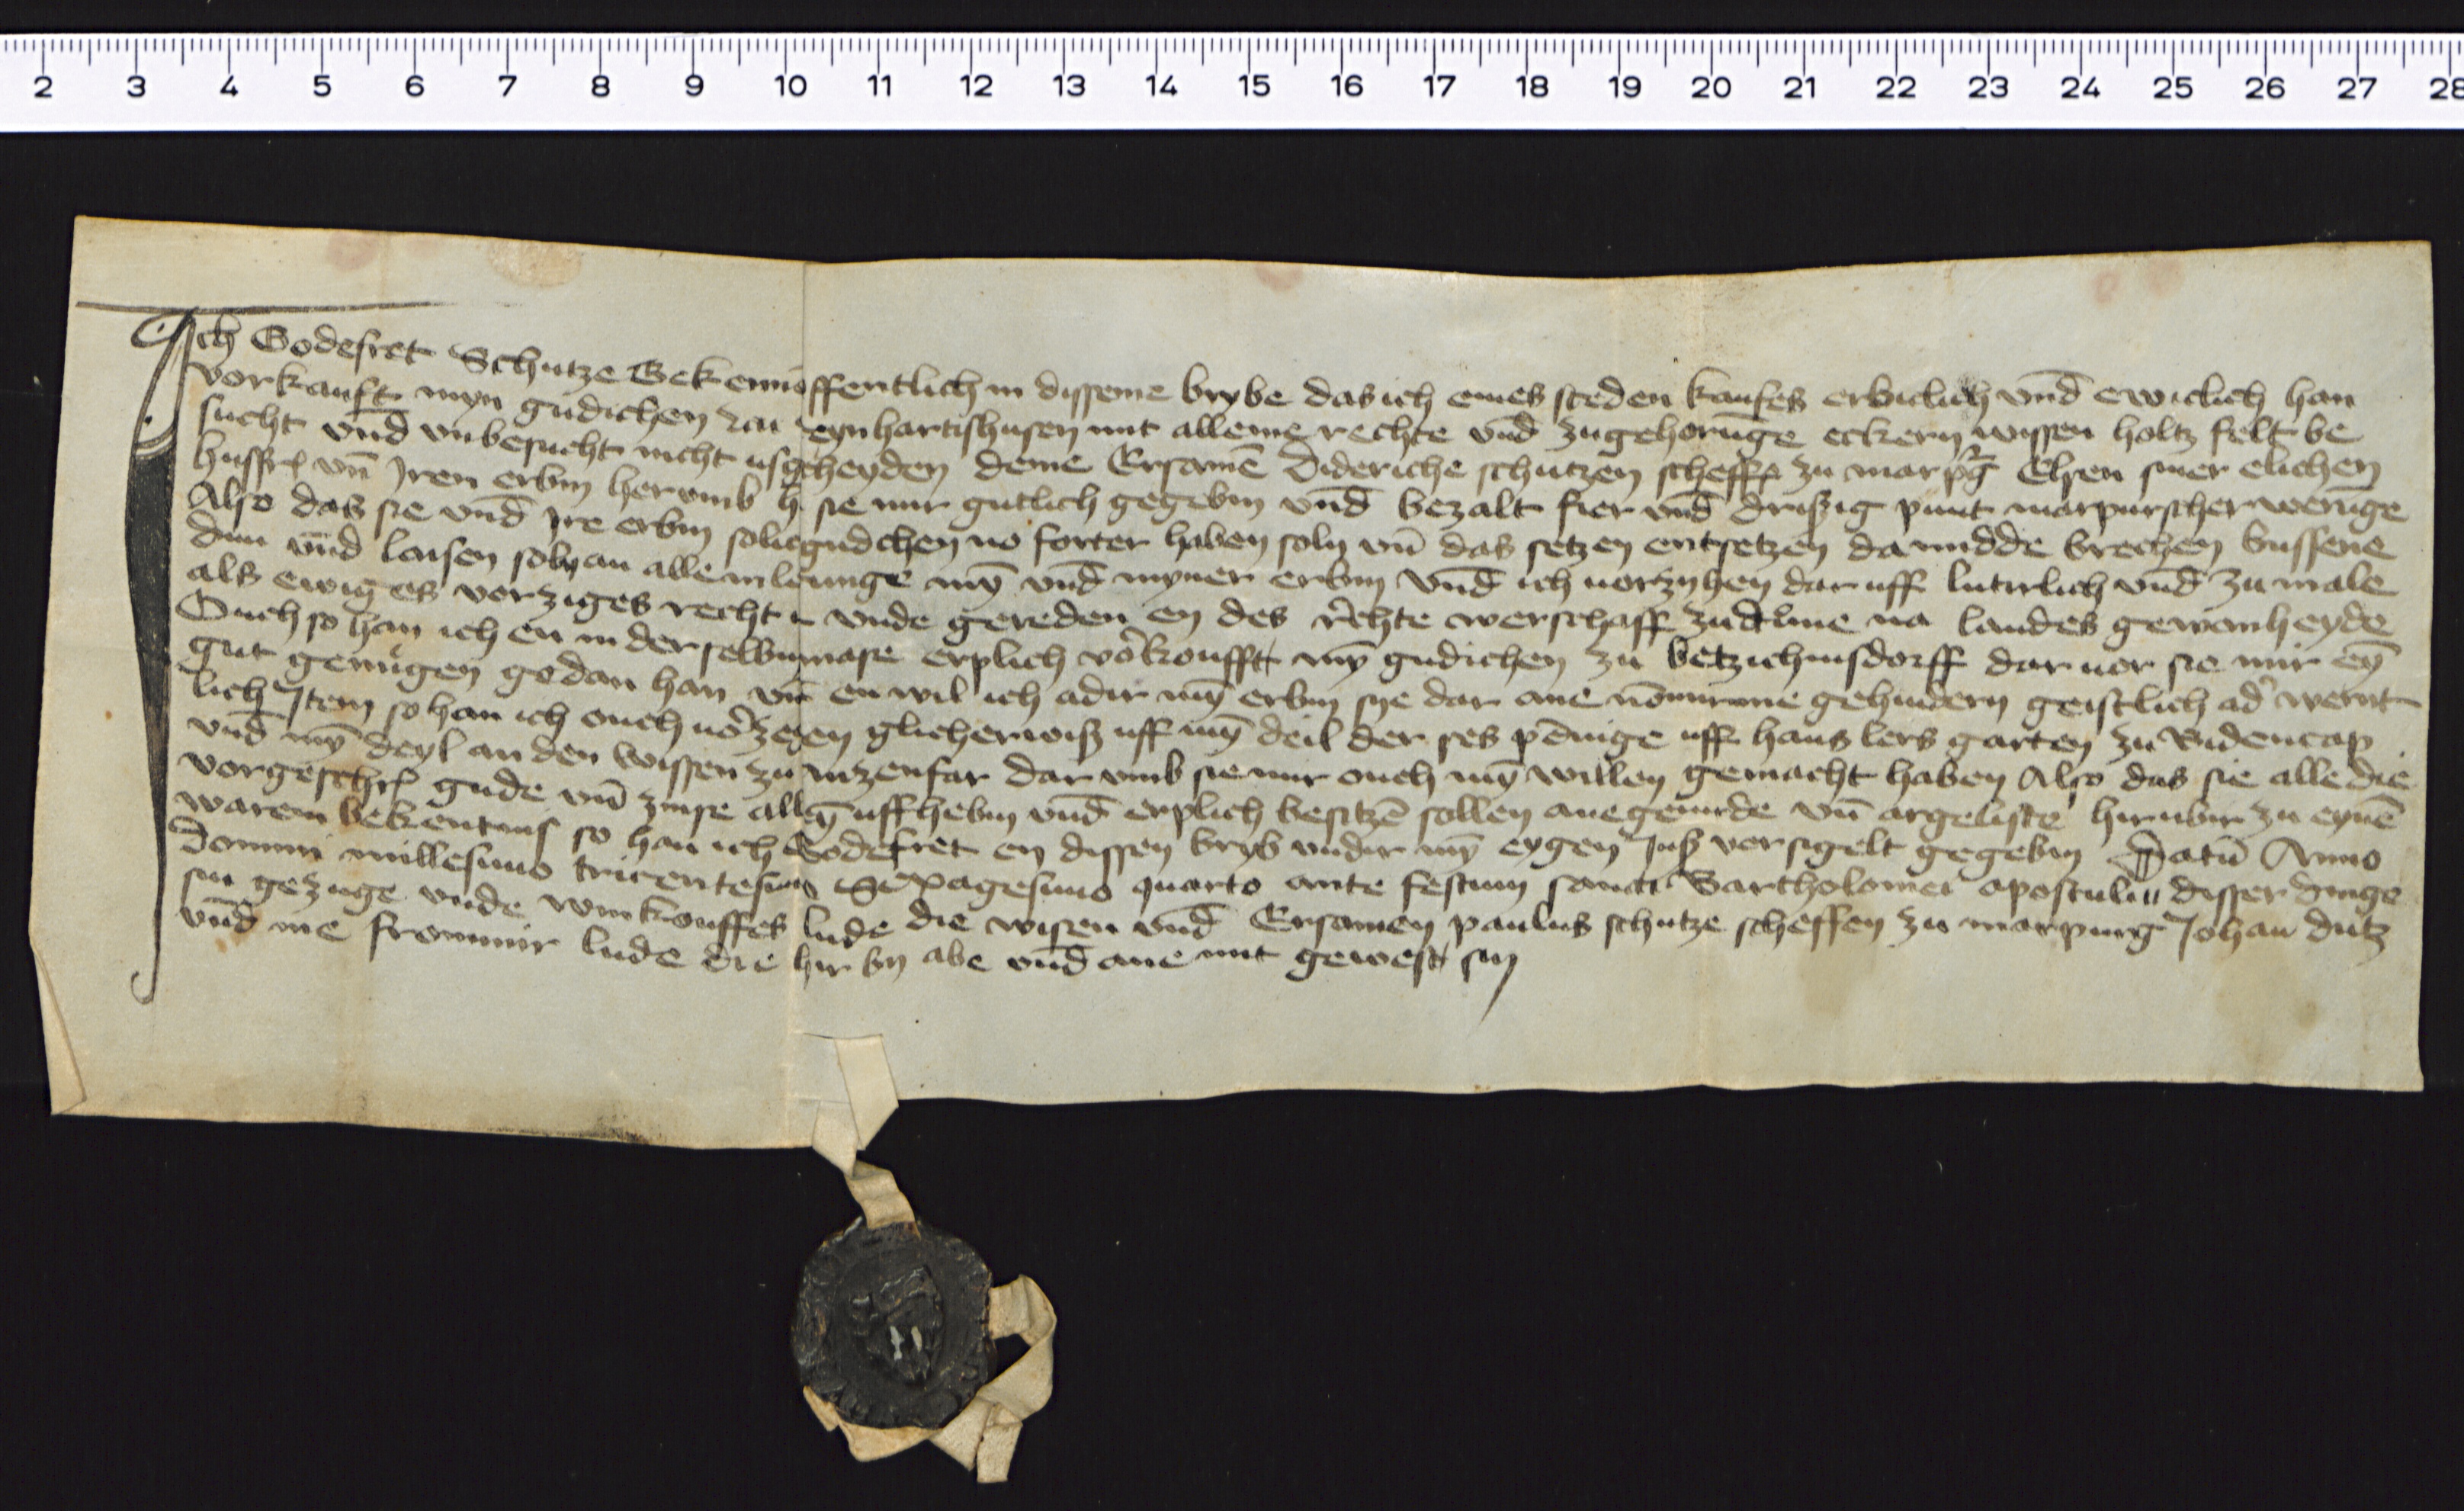 2 3 4 5 6 7 8 9 10 11 12 13 14 15 16 17 18 19 20 21 22 23 24 25 26 27 28
Ich Godefret Schutze Bekenne offentlich in disseme brybe das ich eines steden kaufes erbiclich vnd ewiclich han
vorkauft myn gudichen zcu eynhartishusen mit alleme rechte vnd zugehorunge eckern wissen holtz felt be
sucht vnd vnbesucht nicht usgeheyden deme Ersamē Dideriche schutzen scheffen zu marpg Elsen siner elichen
husfr vn̄ Jren erbin hervmb h sie mir gutlich gegebin vnd bezalt fier vnd drißig punt marpurscher werunge
Also das sie vnd Jre erbin solich gudchen no forter haben soln vn̄ das setzen entsetzen da midde brechen bussene
dun vnd laisen soln an alle inleunge myn̄ vnd myner erbin vnd ich vorzyhen dar uff lutirlich vnd zu male
als ewiges vorziges recht vnde gereden en des rechte werschaff zu dune na landes gewonheyde
Ouch so han ich en in der selbin mase erplich vorkoufft myn̄ gudichen zu betzichinsdorff dar vor sie mir eyn̄
gut genugen gedan han vn̄ en wil ich adir myn̄ erbin sye dar ane nommirme gehindern geistlich adr wernt
lich Jtem so han ich ouch vorzegen glicherwiß uff myn̄ deil der ses penige uff hans lers garten zu Bidencap
vnd myn̄ deyl an den wissen zu nizenfar dar vmb sie mir ouch myn̄ willen gemacht haben Also das sie alle die
vorgeschr gude vn̄ zinse uffhebin vnd erplich besitzē sollen ane geuirde vn̄ argeliste hir ubir zu eynē
waren bekentnis so han ich Godefret en dissen bryb vndir myn̄ eygen Jns versigelt gegebin Datū Anno
domini millesimo tricentesimo Sexagesimo quarto ante festum sancti Bartholomei apostuli disser dinge
sin gezuge vnde winkouffes lude die wisen vnd Ersamen paulus schutze scheffen zu marpurg Johan dutz
vnd me frommir lude die hir by abe vnd ane mit gewest sin